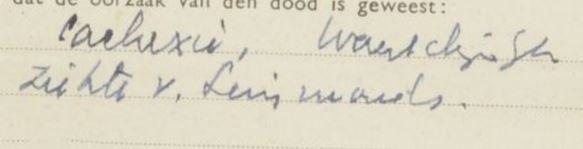 dat de oorzaak van den dood is geweest:
Cachexie, waarschijnlijk
Ziekte v. Simmonds.